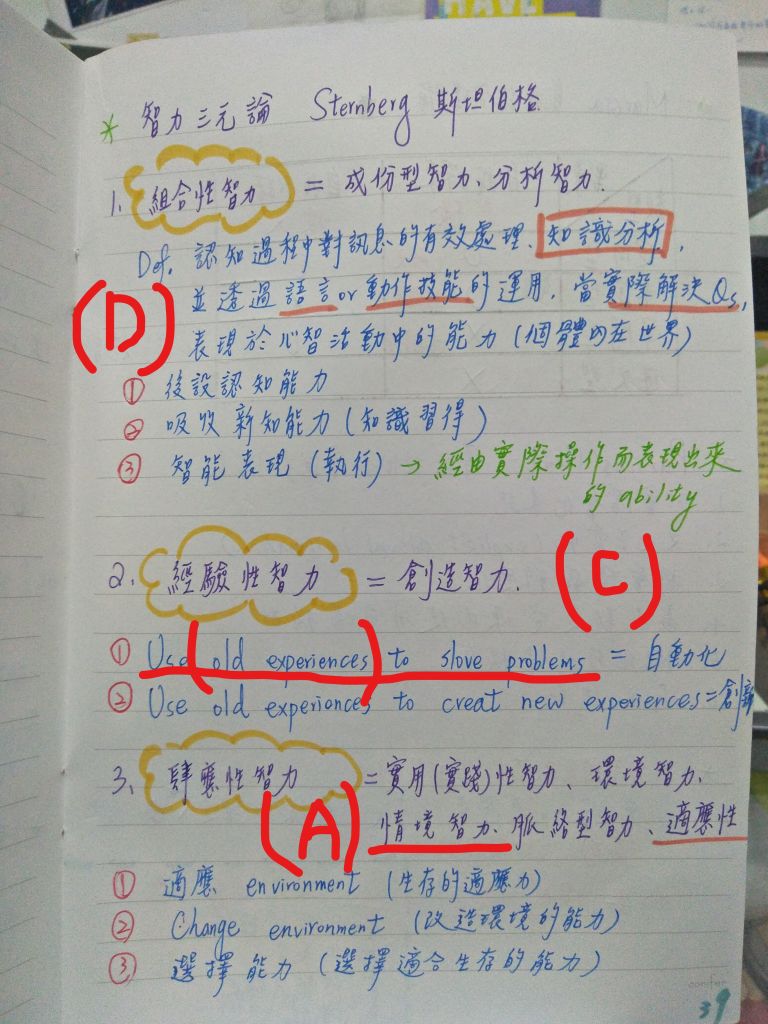 HAVE
* 智力三元論 Sternberg 斯坦伯格
1. 組合性智力 = 成份型智力、分析智力.
Def. 認知過程中對訊息的有效處理、知識分析,
並透過語言or動作技能的運用, 當實際解決Qs,
(D)
表現於心智活動中的能力 (個體內在世界)
① 後設認知能力
② 吸收新知能力 (知識習得)
③ 智能表現 (執行) → 經由實際操作而表現出來
的 ability
2. 經驗性智力 = 創造智力.
(C)
① Use (old experiences) to slove problems = 自動化
② Use old experiences to creat new experiences = 創新
3. 肆應性智力 = 實用(實踐)性智力、環境智力、
(A)
情境智力、脈絡型智力、適應性
① 適應 environment (生存的適應力)
② Change environment (改造環境的能力)
③ 選擇能力 (選擇適合生存的能力)
39